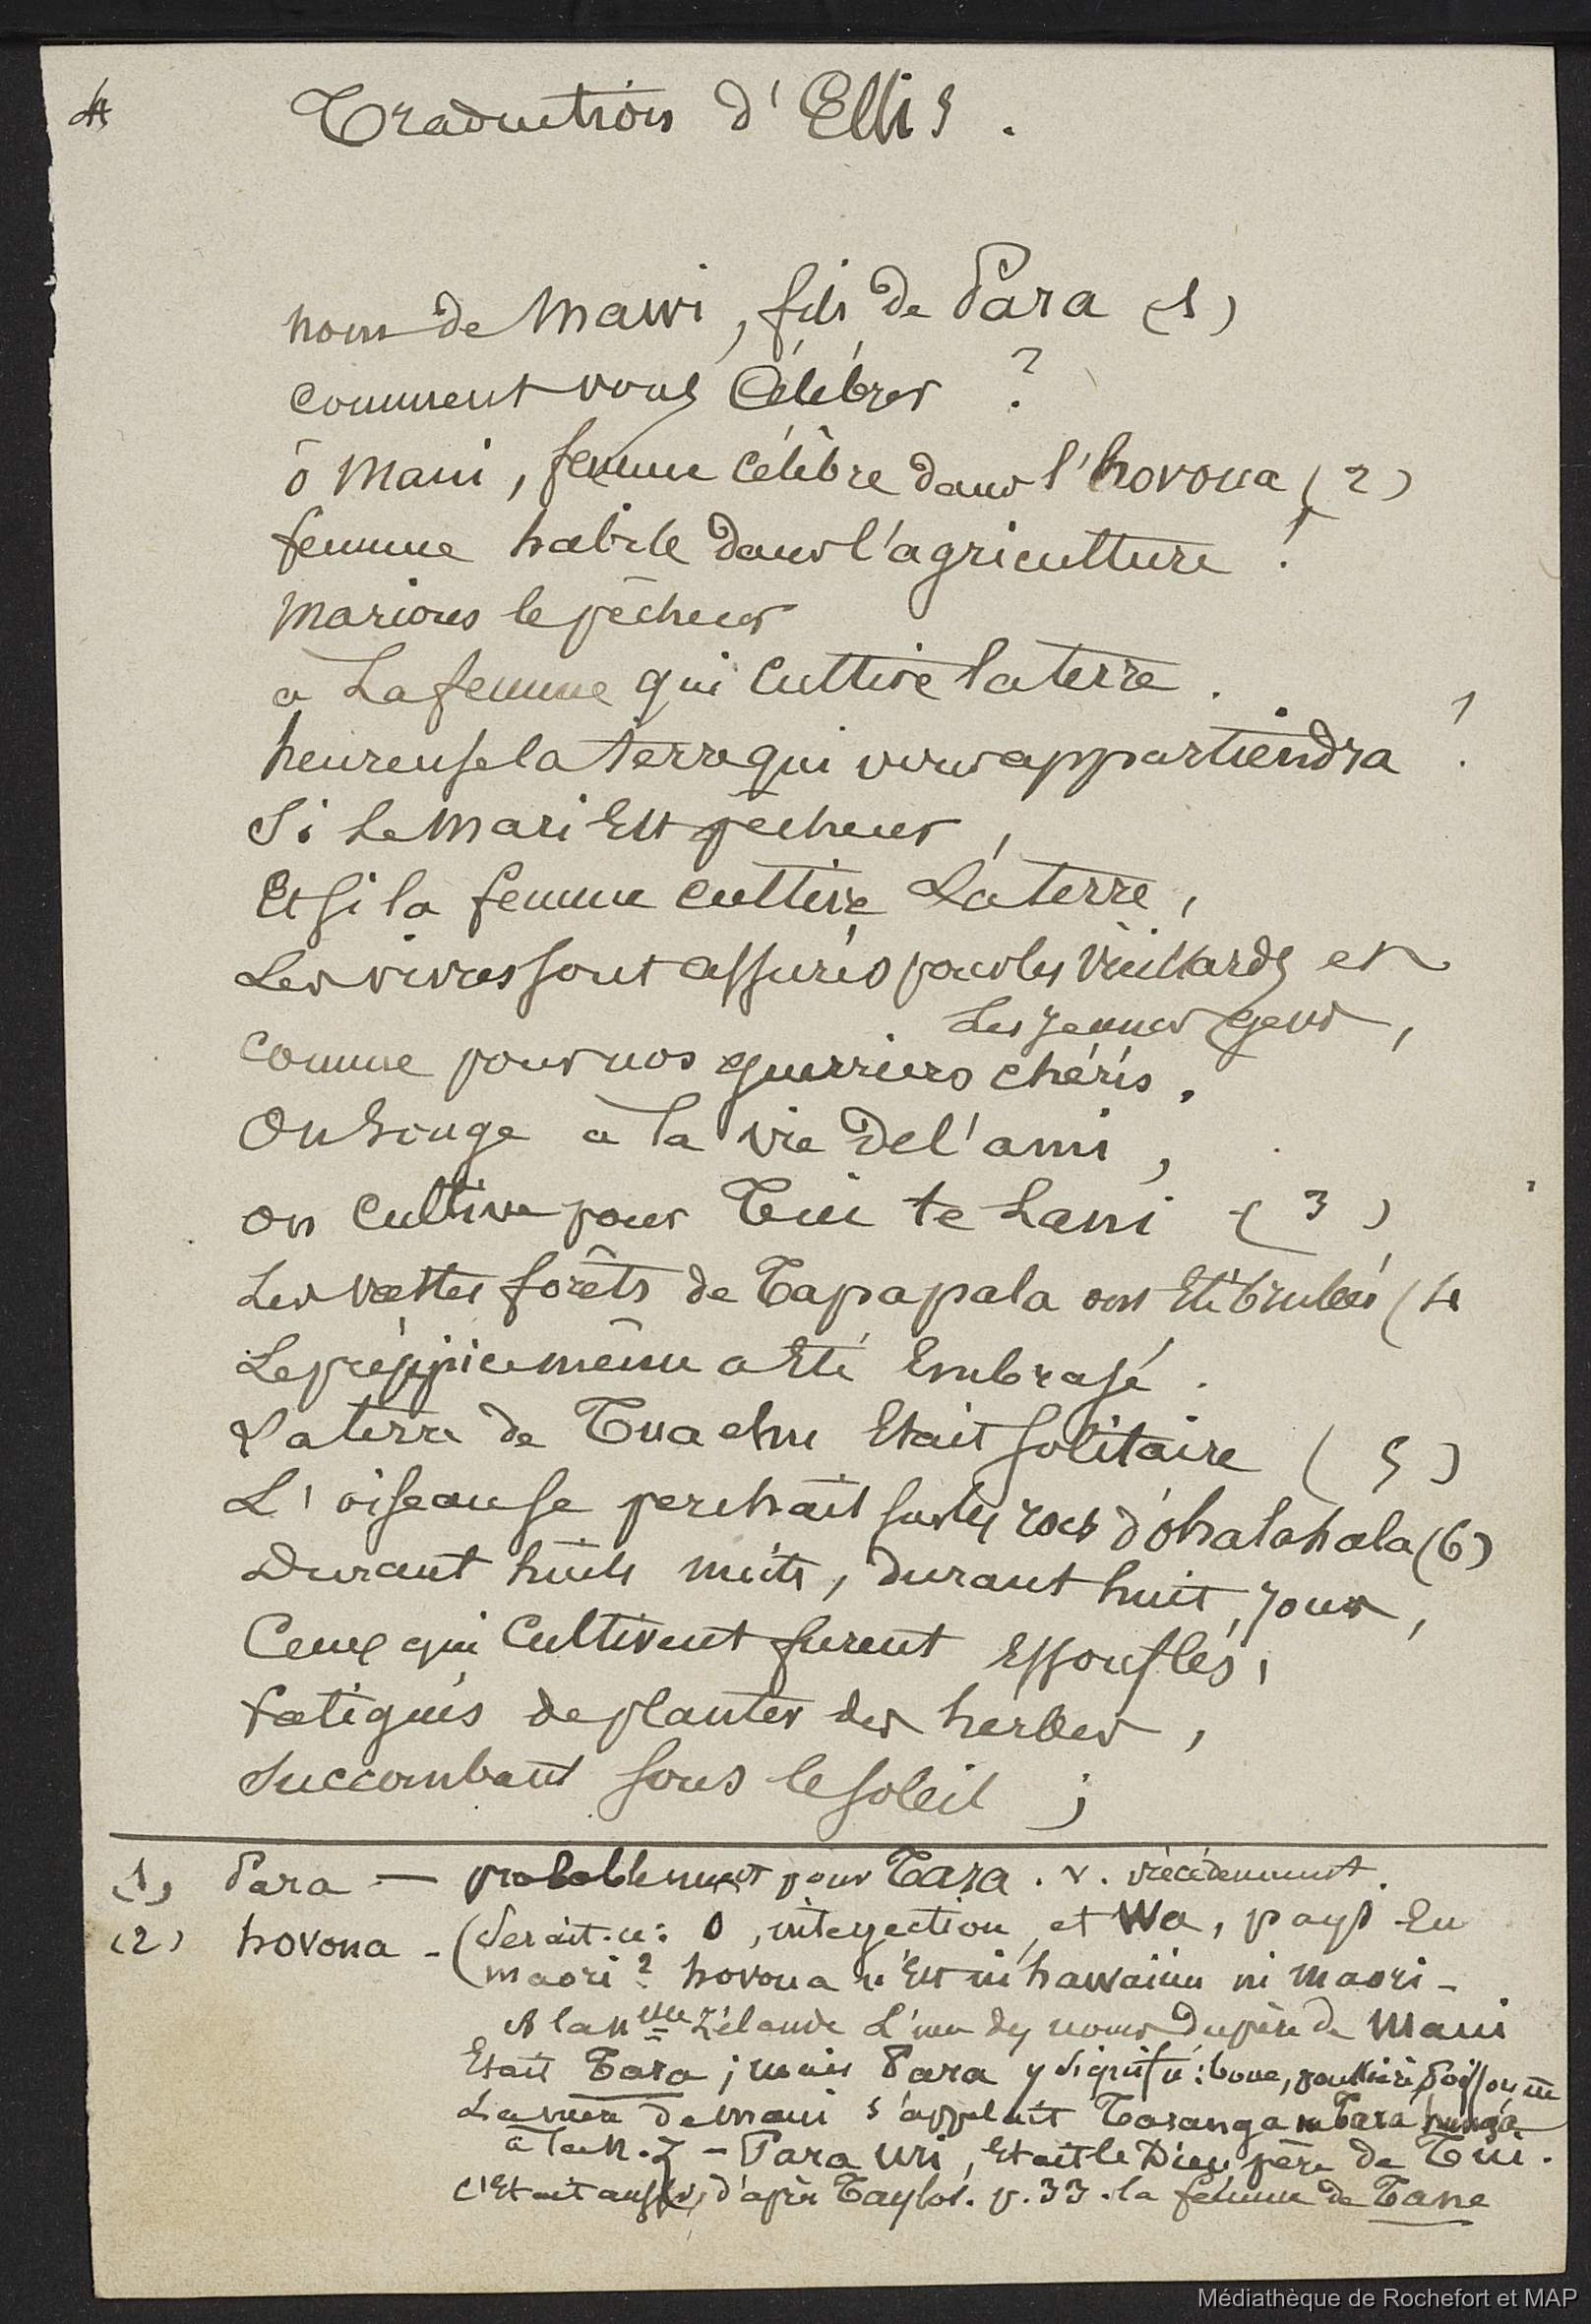 4
Traduction d'Ellis.
nom de Mawi, fils de Para (1)
comment vous célébrer ?
ô Maui, femme célèbre dans l'hovoua (2)
femme habile dans l'agriculture !
Marions le pêcheur
a La femme qui cultive la terre.
heureuse la terre qui vous appartiendra !
Si Le Mari Est pêcheur,
Et si la femme cultive La terre,
Les vivres sont assurés pour les vieillards et
Les jeunes gens,
comme pour nos guerriers chéris.
On songe a la vie de l'ami,
on cultive pour Tui te Lani (3)
Les vastes forêts de Tapapala ont Eté brulées (4
Le précipice même a Eté Embrasé.
La terre de Tuaehu Etait solitaire (5)
L'oiseau se perchait sur les rocs d'ohalahala (6)
Durant huits nuits, durant huit jours,
Ceux qui Cultivent furent Essouflés,
fatigués de planter des herbes,
Succombant sous le soleil ;
(1) Para — probablement pour Tara. v. précédemment.
(2) hovoua - (Serait-ce: O, interjection, et Wa, pays En
maori ? hovoua n'Est ni hawaiien ni maori -
A la nlle Zélande L'un des noms du père de Maui
Etait Tara ; mais Para y signifie : boue, poussière, Poisson
La mère de Maui s'appelait Taranga ou Tara hunga
à la N.Z - Para Uri, Etait le Dieu père de Tui.
c'Etait aussi, d'après Taylor. p. 33. la femme de Tane
Médiathèque de Rochefort et MAP